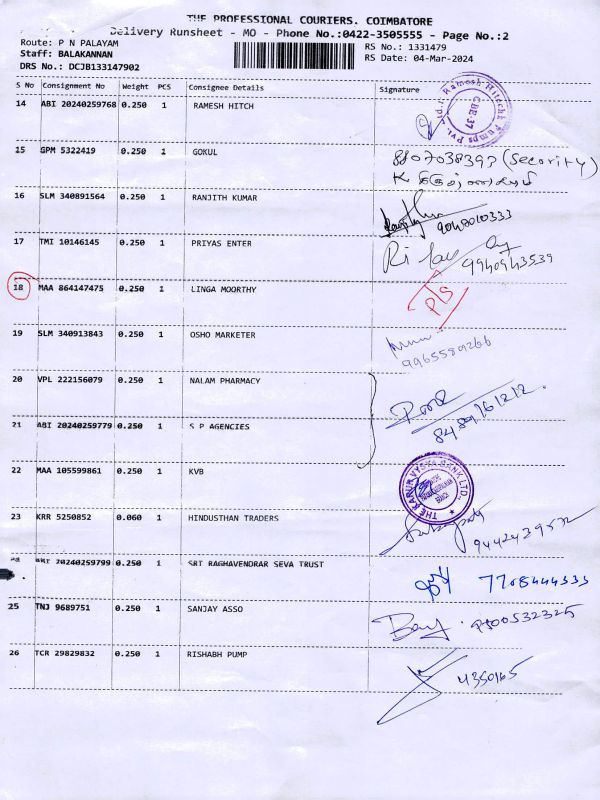 THE PROFESSIONAL COURIERS. COIMBATORE
Delivery Runsheet - MO - Phone No.:0422-3505555 - Page No.:2
Route: P N PALAYAM
RS No.: 1331479
Staff: BALAKANNAN
RS Date: 04-Mar-2024
DRS No.: DCJB133147902
S No Consignment No Weight PCS Consignee Details Signature
14 ABI 20240259768 0.250 1 RAMESH HITCH
CBE-37
15 GPM 5322419 0.250 1 GOKUL
8807038397 (Security)
16 SLM 340891564 0.250 1 RANJITH KUMAR
9048010333
17 TMI 10146145 0.250 1 PRIYAS ENTER
9940943539
18 MAA 864147475 0.250 1 LINGA MOORTHY
P/S
19 SLM 340913843 0.250 1 OSHO MARKETER
9965589266
20 VPL 222156079 0.250 1 NALAM PHARMACY
21 ABI 20240259779 0.250 1 S P AGENCIES
8489761212
22 MAA 105599861 0.250 1 KVB
THE KARUR VYSYA BANK LTD.
23 KRR 5250852 0.060 1 HINDUSTHAN TRADERS
ABI 20240259799 0.250 1 SRI RAGHAVENDRAR SEVA TRUST
7708444333
25 TNJ 9689751 0.250 1 SANJAY ASSO
9800532325
26 TCR 29829832 0.250 1 RISHABH PUMP
4350165